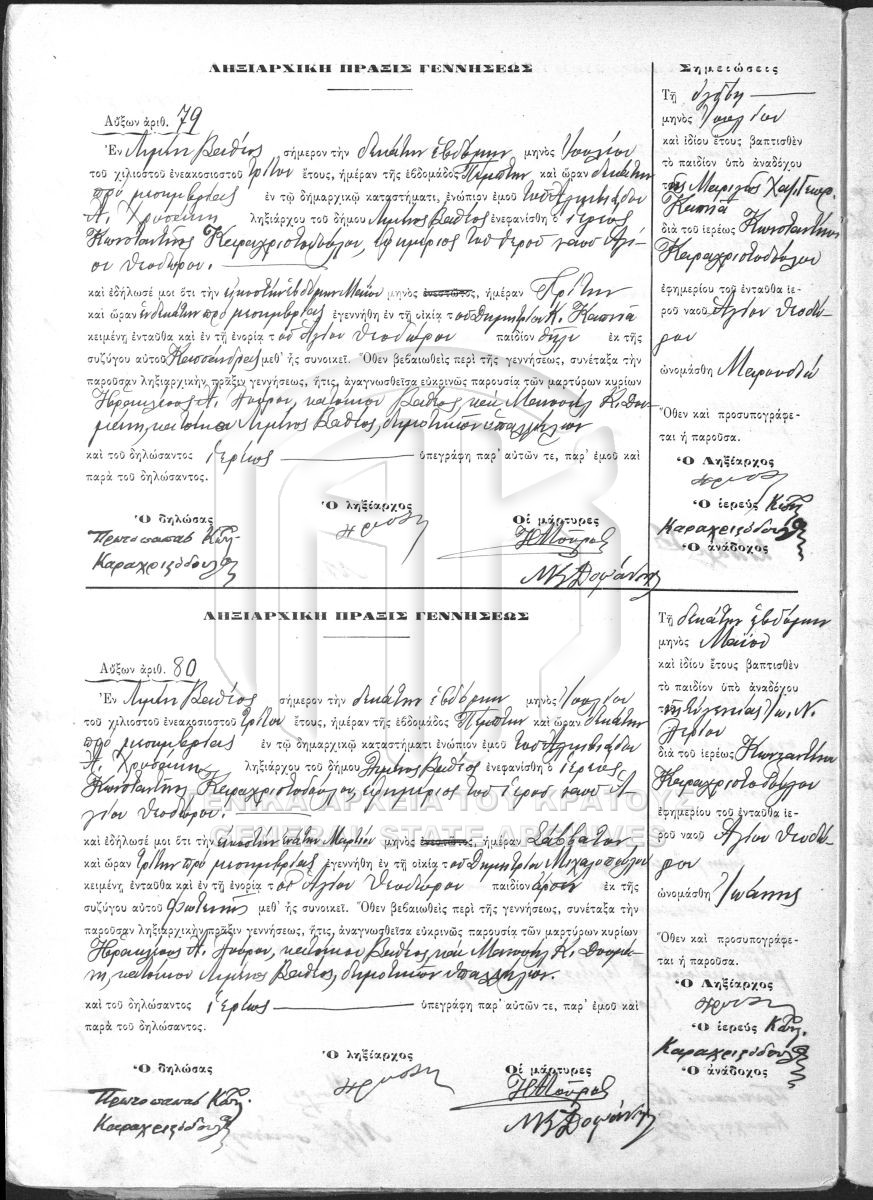 ΛΗΞΙΑΡΧΙΚΗ ΠΡΑΞΙΣ ΓΕΝΝΗΣΕΩΣ
Αὔξων ἀριθ. 79
Ἐν Λιμένι Βαθέος σήμερον τὴν δεκάτην ἑβδόμην μηνὸς Ἰουλίου
τοῦ χιλιοστοῦ ἐνεακοσιοστοῦ τρίτου ἔτους, ἡμέραν τῆς ἑβδομάδος Πέμπτην καὶ ὥραν δεκάτην
πρὸ μεσημβρίας ἐν τῷ δημαρχικῷ καταστήματι, ἐνώπιον ἐμοῦ τοῦ Ἀλκιβιάδου
Α. Χρυσάκη ληξιάρχου τοῦ δήμου Λιμένος Βαθέος ἐνεφανίσθη ὁ ἱερεὺς
Κωνσταντῖνος Καραχριστοδούλου, ἐφημέριος τοῦ ἱεροῦ ναοῦ Ἁγί-
ου Θεοδώρου.
καὶ ἐδήλωσέ μοι ὅτι τὴν εἰκοστὴν ἑβδόμην Μαΐου μηνὸς ἐνεστῶτος, ἡμέραν Τρίτην
καὶ ὥραν ἑνδεκάτην πρὸ μεσημβρίας ἐγεννήθη ἐν τῇ οἰκίᾳ τοῦ Δημητρίου Κ. Καπνιᾶ
κειμένῃ ἐνταῦθα καὶ ἐν τῇ ἐνορίᾳ τοῦ Ἁγίου Θεοδώρου παιδίον θῆλυ ἐκ τῆς
συζύγου αὐτοῦ Κασσάνδρας μεθ' ἧς συνοικεῖ. Ὅθεν βεβαιωθεὶς περὶ τῆς γεννήσεως, συνέταξα τὴν
παροῦσαν ληξιαρχικὴν πρᾶξιν γεννήσεως, ἥτις, ἀναγνωσθεῖσα εὐκρινῶς παρουσίᾳ τῶν μαρτύρων κυρίων
Ἡρακλέους Α. Μούρου, κατοίκου Βαθέος, καὶ Μανουὴλ Κ. Δου-
μάνη, κατοίκου Λιμένος Βαθέος, δημοτικῶν ὑπαλλήλων
καὶ τοῦ δηλώσαντος ἱερέως ὑπεγράφη παρ' αὐτῶν τε, παρ' ἐμοῦ καὶ
παρὰ τοῦ δηλώσαντος.
Ὁ δηλώσας Ὁ ληξίαρχος Οἱ μάρτυρες
Πρωτοπαπᾶς Κων.
Καραχριστόδουλος
Σημειώσεις
Τῇ ὀγδόῃ
μηνὸς Ἰουλίου
καὶ ἰδίου ἔτους βαπτισθὲν
τὸ παιδίον ὑπὸ ἀναδόχου
τῆς Μαρίας Χατζῆ Γεωρ.
Καπνιᾶ
διὰ τοῦ ἱερέως Κωνσταντίνου
Καραχριστοδούλου
ἐφημερίου τοῦ ἐνταῦθα ἱε-
ροῦ ναοῦ Ἁγίου Θεοδώ-
ρου
ὠνομάσθη
Ὅθεν καὶ προσυπογράφε-
ται ἡ παροῦσα.
Ὁ Ληξίαρχος
Ὁ ἱερεὺς Κων.
Καραχριστόδουλος
Ὁ ἀνάδοχος
ΛΗΞΙΑΡΧΙΚΗ ΠΡΑΞΙΣ ΓΕΝΝΗΣΕΩΣ
Αὔξων ἀριθ. 80
Ἐν Λιμένι Βαθέος σήμερον τὴν δεκάτην ἑβδόμην μηνὸς Ἰουλίου
τοῦ χιλιοστοῦ ἐνεακοσιοστοῦ τρίτου ἔτους, ἡμέραν τῆς ἑβδομάδος Πέμπτην καὶ ὥραν δεκάτην
πρὸ μεσημβρίας ἐν τῷ δημαρχικῷ καταστήματι ἐνώπιον ἐμοῦ τοῦ Ἀλκιβιάδου
Α. Χρυσάκη ληξιάρχου τοῦ δήμου Λιμένος Βαθέος ἐνεφανίσθη ὁ ἱερεὺς
Κωνσταντῖνος Καραχριστοδούλου, ἐφημέριος τοῦ ἱεροῦ ναοῦ Ἁ-
γίου Θεοδώρου.
καὶ ἐδήλωσέ μοι ὅτι τὴν εἰκοστὴν ἐνάτην Μαρτίου μηνὸς ἐνεστῶτος, ἡμέραν Σάββατον
καὶ ὥραν τρίτην πρὸ μεσημβρίας ἐγεννήθη ἐν τῇ οἰκίᾳ τοῦ Δημητρίου Μιχαλοπούλου
κειμένῃ ἐνταῦθα καὶ ἐν τῇ ἐνορίᾳ τοῦ Ἁγίου Θεοδώρου παιδίον ἄρρεν ἐκ τῆς
συζύγου αὐτοῦ Φωτεινῆς μεθ' ἧς συνοικεῖ. Ὅθεν βεβαιωθεὶς περὶ τῆς γεννήσεως, συνέταξα τὴν
παροῦσαν ληξιαρχικὴν πρᾶξιν γεννήσεως, ἥτις, ἀναγνωσθεῖσα εὐκρινῶς παρουσίᾳ τῶν μαρτύρων κυρίων
Ἡρακλέους Α. Μούρου, κατοίκου Βαθέος, καὶ Μανουὴλ Κ. Δουμά-
νη, κατοίκου Λιμένος Βαθέος, δημοτικῶν ὑπαλλήλων.
καὶ τοῦ δηλώσαντος ἱερέως ὑπεγράφη παρ' αὐτῶν τε, παρ' ἐμοῦ καὶ
παρὰ τοῦ δηλώσαντος.
Ὁ δηλώσας Ὁ ληξίαρχος Οἱ μάρτυρες
Πρωτοπαπᾶς Κων.
Καραχριστόδουλος
Τῇ δεκάτῃ ἑβδόμῃ
μηνὸς Μαΐου
καὶ ἰδίου ἔτους βαπτισθὲν
τὸ παιδίον ὑπὸ ἀναδόχου
τῆς Εὐγενίας Ἰω. Ν.
διὰ τοῦ ἱερέως Κωνσταντίνου
Καραχριστοδούλου
ἐφημερίου τοῦ ἐνταῦθα ἱε-
ροῦ ναοῦ Ἁγίου Θεοδώ-
ρου
ὠνομάσθη Ἰωάννης
Ὅθεν καὶ προσυπογράφε-
ται ἡ παροῦσα.
Ὁ Ληξίαρχος
Ὁ ἱερεὺς Κων.
Καραχριστόδουλος
Ὁ ἀνάδοχος
ΓΕΝΙΚΑ ΑΡΧΕΙΑ ΤΟΥ ΚΡΑΤΟΥΣ
GENERAL STATE ARCHIVES